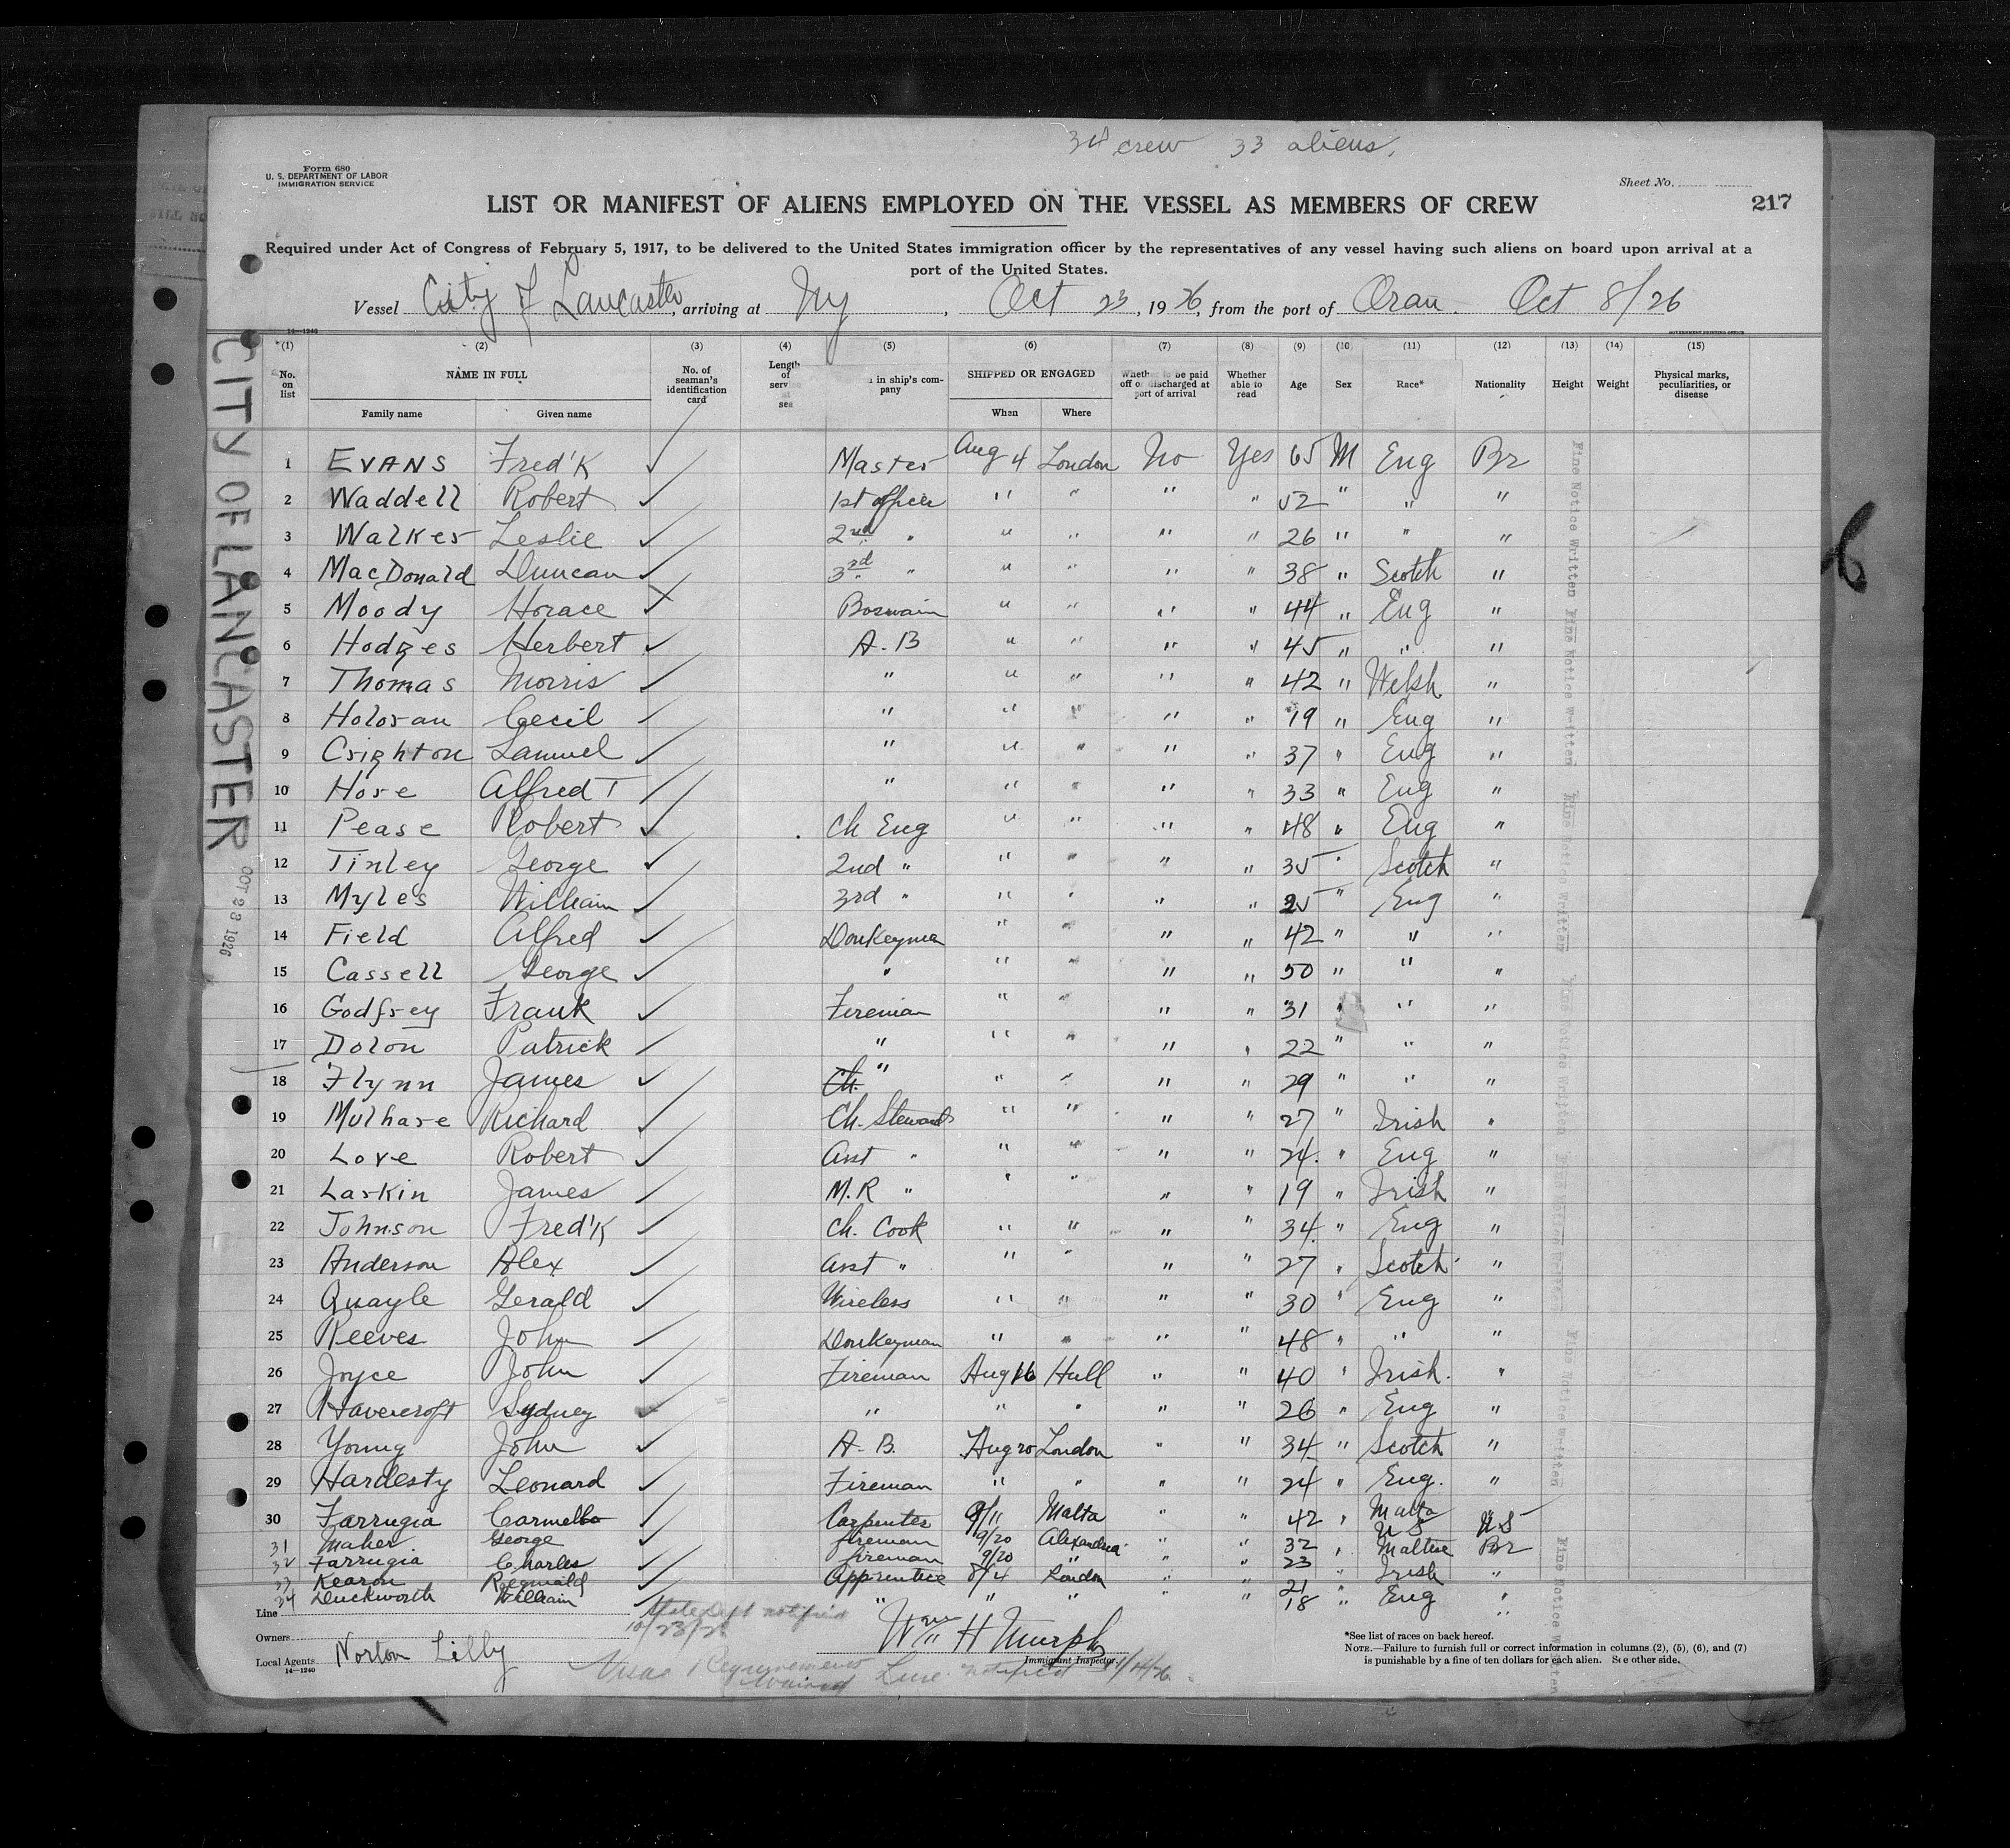 34 crew 33 aliens.
Form 680
U. S. DEPARTMENT OF LABOR
IMMIGRATION SERVICE
Sheet No.
217
LIST OR MANIFEST OF ALIENS EMPLOYED ON THE VESSEL AS MEMBERS OF CREW
Required under Act of Congress of February 5, 1917, to be delivered to the United States immigration officer by the representatives of any vessel having such aliens on board upon arrival at a
port of the United States.
Vessel City of Lancaster, arriving at Ny, Oct 23, 1926, from the port of Oran. Oct 8/26
14—1240 GOVERNMENT PRINTING OFFICE
(1) (2) (3) (4) (5) (6) (7) (8) (9) (10 (11) (12) (13) (14) (15)
No. on list NAME IN FULL No. of seaman's identification card Length of serv at sea in ship's company SHIPPED OR ENGAGED Whether to be paid off or discharged at port of arrival Whether able to read Age Sex Race* Nationality Height Weight Physical marks, peculiarities, or disease
Family name Given name When Where
1 EVANS Fred'K Master Aug 4 London No Yes 65 M Eng Br
2 Waddell Robert 1st officer " " " " 52 " " "
3 Walker Leslie 2nd " " " " " 26 " " "
4 MacDonald Duncan 3rd " " " " " 38 " Scotch "
5 Moody Horace Boswain " " " " 44 " Eng "
6 Hodges Herbert A-B " " " " 45 " " "
7 Thomas Morris " " " " " 42 " Welsh "
8 Holoran Cecil " " " " " 19 " Eng "
9 Crighton Samuel " " " " " 37 " Eng "
10 Hore Alfred T " " " " " 33 " Eng "
11 Pease Robert Ch Eng " " " " 48 " Eng "
12 Tinley George 2nd " " " " " 35 " Scotch "
13 Myles William 3rd " " " " " 25 " Eng "
14 Field Alfred Donkeyman " " " " 42 " " "
15 Cassell George " " " " " 50 " " "
16 Godfrey Frank Fireman " " " " 31 " " "
17 Dolon Patrick " " " " " 22 " " "
18 Flynn James Ch. " " " " " 29 " " "
19 Mulhare Richard Ch. Steward " " " " 27 " Irish "
20 Love Robert Asst " " " " " 24 " Eng "
21 Larkin James M.R " " " " " 19 " Irish "
22 Johnson Fred'K Ch. Cook " " " " 34 " Eng "
23 Anderson Alex Asst " " " " " 27 " Scotch "
24 Quayle Gerald Wireless " " " " 30 " Eng "
25 Reeves John Donkeyman " " " " 48 " " "
26 Joyce John Fireman Aug 16 Hull " " 40 " Irish "
27 Havercroft Sydney " " " " " 26 " Eng "
28 Young John A. B. Aug 20 London " " 34 " Scotch "
29 Hardesty Leonard Fireman " " " " 24 " Eng. "
30 Farrugia Carmello Carpenter 9/11 Malta " " 42 " Malta
31 Maher George fireman 9/20 Alexandria " " 32 " U S U S
32 Farrugia Charles fireman 9/20 " " " 23 Maltese Br
33 Kearon Reginald Apprentice 8/4 London " " 21 " Irish "
34 Duckworth William " " " " " 18 " Eng "
Line State Dept notified
10/23/26
Owners
Local Agents Norton Lilly
14—1240
Wm H Murphy
Immigrant Inspector.
Visas Requirements Waived Line notified
*See list of races on back hereof.
NOTE.—Failure to furnish full or correct information in columns (2), (5), (6), and (7)
is punishable by a fine of ten dollars for each alien. See other side.
CITY OF LANCASTER OCT 23 1926
Fine Notice Written Fine Notice Written Fine Notice Written Fine Notice Written Fine Notice Written Fine Notice Written Fine Notice Written
6